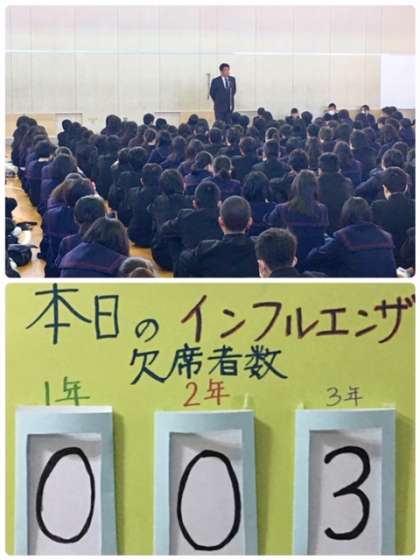 本日のインフルエンザ
欠席者数
1年 2年 3年
0 0 3